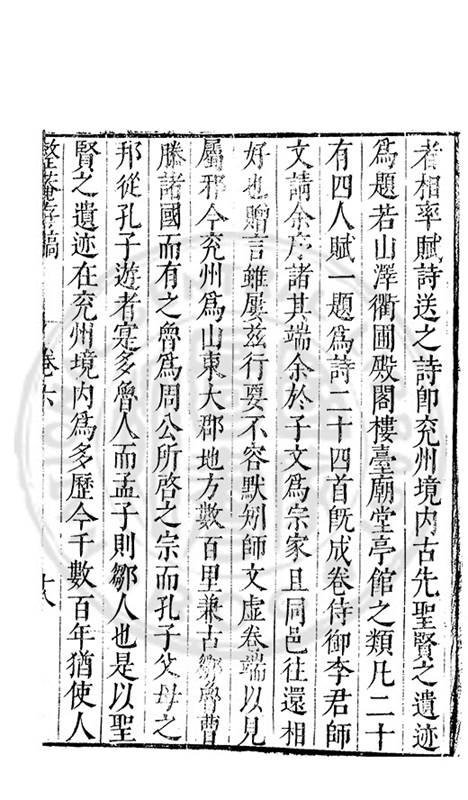 者相率賦詩送之詩即兖州境内古先聖賢之遺迹
爲題若山澤衢圃殿閣樓臺廟堂亭館之類凡二十
有四人賦一題爲詩二十四首既成卷侍御李君師
文請余序諸其端余於子文爲宗家且同邑往還相
好也贈言雖屢兹行要不容默矧師文虛卷端以見
屬邪今兖州爲山東大郡地方數百里兼古鄒魯曹
滕諸國而有之魯爲周公所啓之宗而孔子父母之
邦從孔子遊者寔多魯人而孟子則鄒人也是以聖
賢之遺迹在兖州境内爲多歷今千數百年猶使人
整菴存稿 卷六 十八